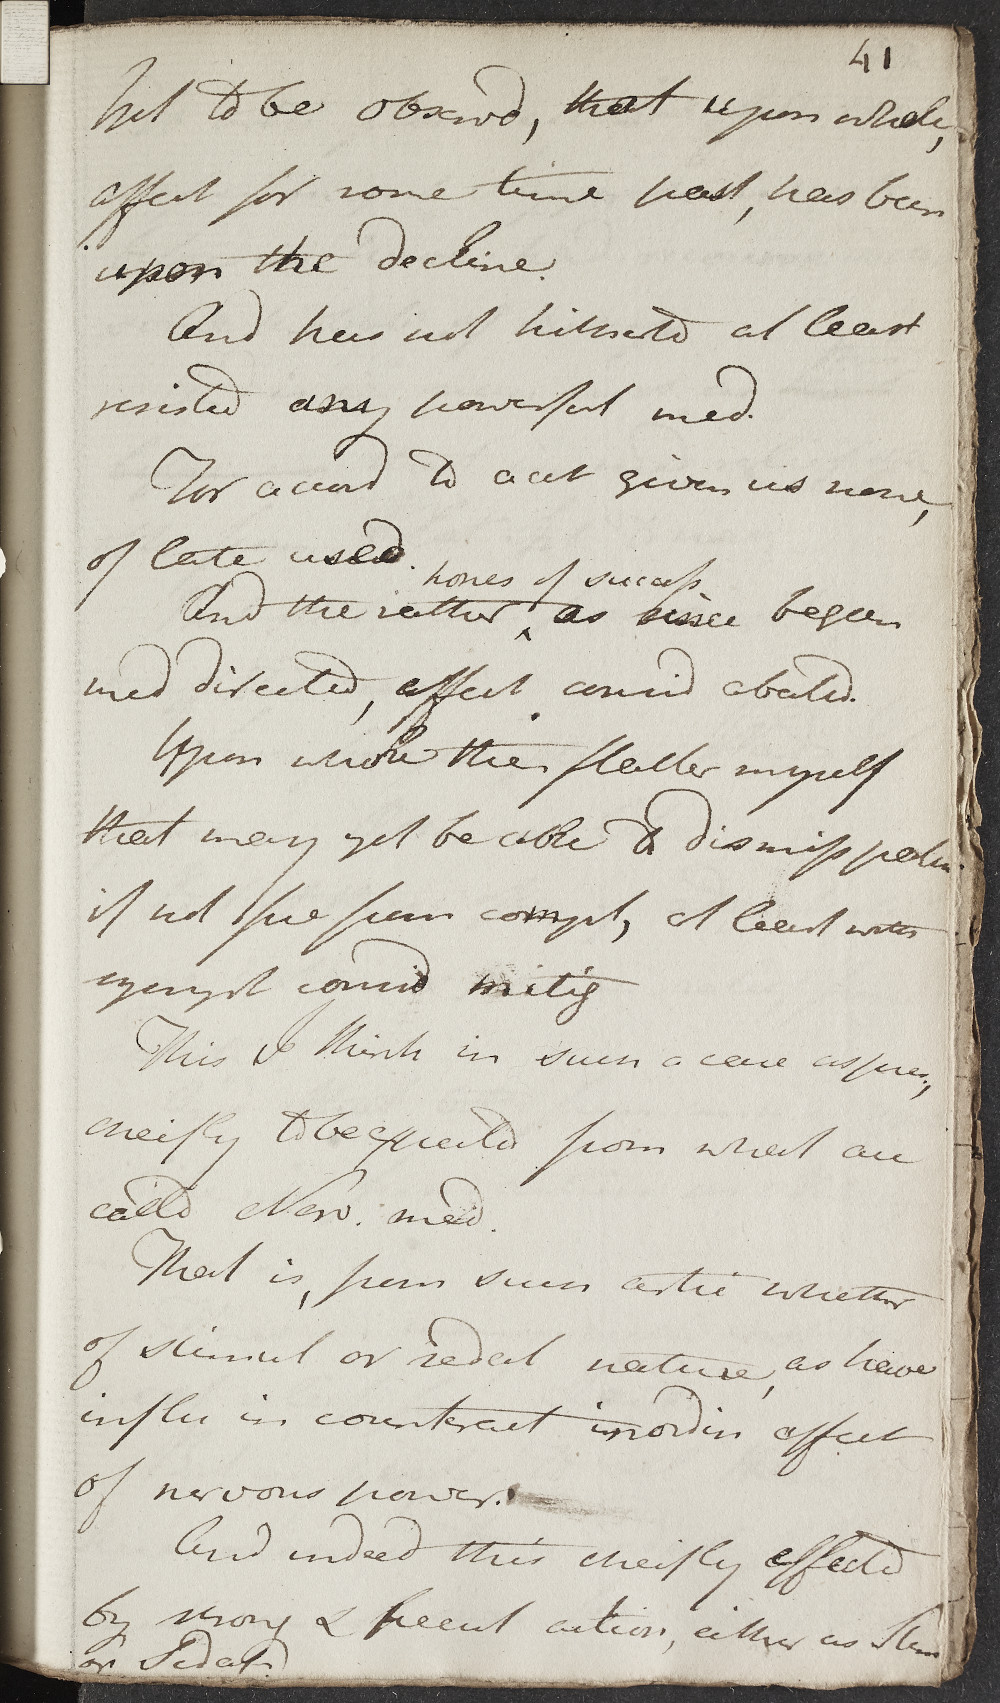 41
Yet to be obserd, that upon whole,
affect for some time past, has been
upon the decline.
And has not hitherto at least
resisted any powerful med.
For accord to acct given us none,
of late used.
hopes of success
And the rather ^ as since begun
med directed, affect consid abated.
Upon whole then flatter myself
that may yet be able to dismiss patien
if not free from compt, at least with
sympt consid mitig
This I think in such a case as pres,
cheifly to be expected from what are
called Nerv. med.
That is, from such artic whether
of stimul or sedat nature, as have
influ in counteract inordin affect
of nervous power.
And indeed this cheifly effected
by strong & action, either as Stim
or Sedat.